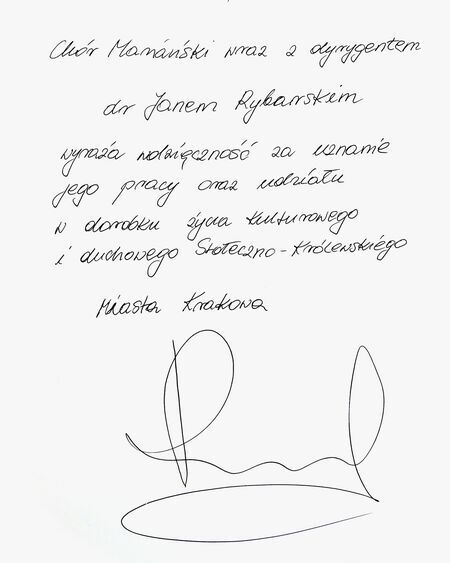 Chór Mariański wraz z dyrygentem
dr Janem Rybarskim
wyraża wdzięczność za uznanie
jego pracy oraz udziału
w dorobku życia kulturowego
i duchowego Stołeczno-Królewskiego
Miasta Krakowa